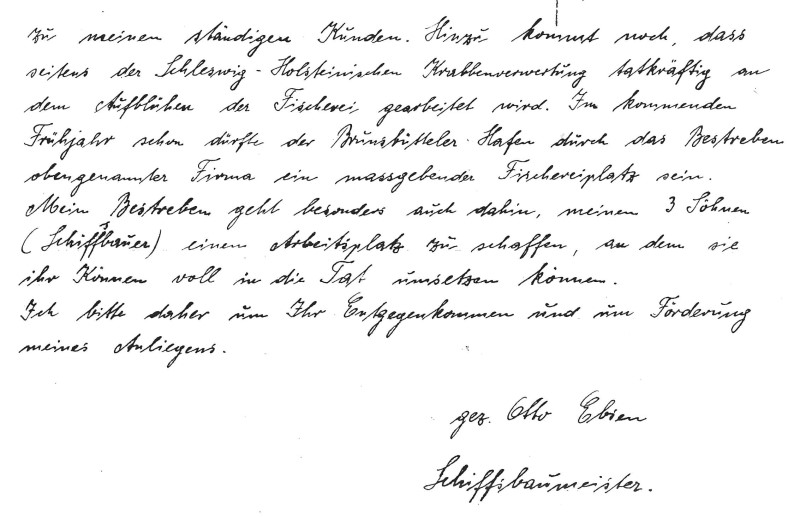 zu meinen ständigen Kunden. Hinzu kommt noch, dass
seitens der Schleswig-Holsteinischen Krabbenverwertung tatkräftig an
dem Aufblühen der Fischerei, gearbeitet wird. Im kommenden
Frühjahr schon dürfte der Brunsbütteler Hafen durch das Bestreben
obengenannter Firma ein massgebender Fischereiplatz sein.
Mein Bestreben geht besonders auch dahin, meinen 3 Söhnen
(Schiffsbauer) einem Arbeitsplatz zu schaffen, an dem sie
ihr Können voll in die Tat umsetzen können.
Ich bitte daher um Ihr Entgegenkommen und um Förderung
meines Anliegens.
gez. Otto Ebsen
Schiffsbaumeister.